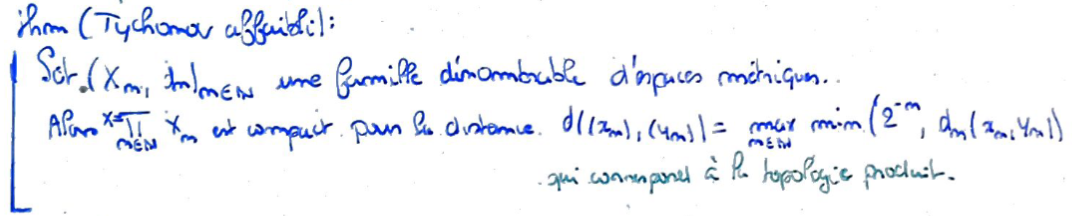 thm (Tychonov affaibli):
Soit (X_n, d_n)_{n∈ℕ} une famille dénombrable d'espaces métriques.
Alors X=∏_{n∈ℕ} X_n est compact pour la distance d((x_n),(y_n)) = max_{n∈ℕ} min(2^{-n}, d_n(x_n,y_n))
qui correspond à la topologie produit.